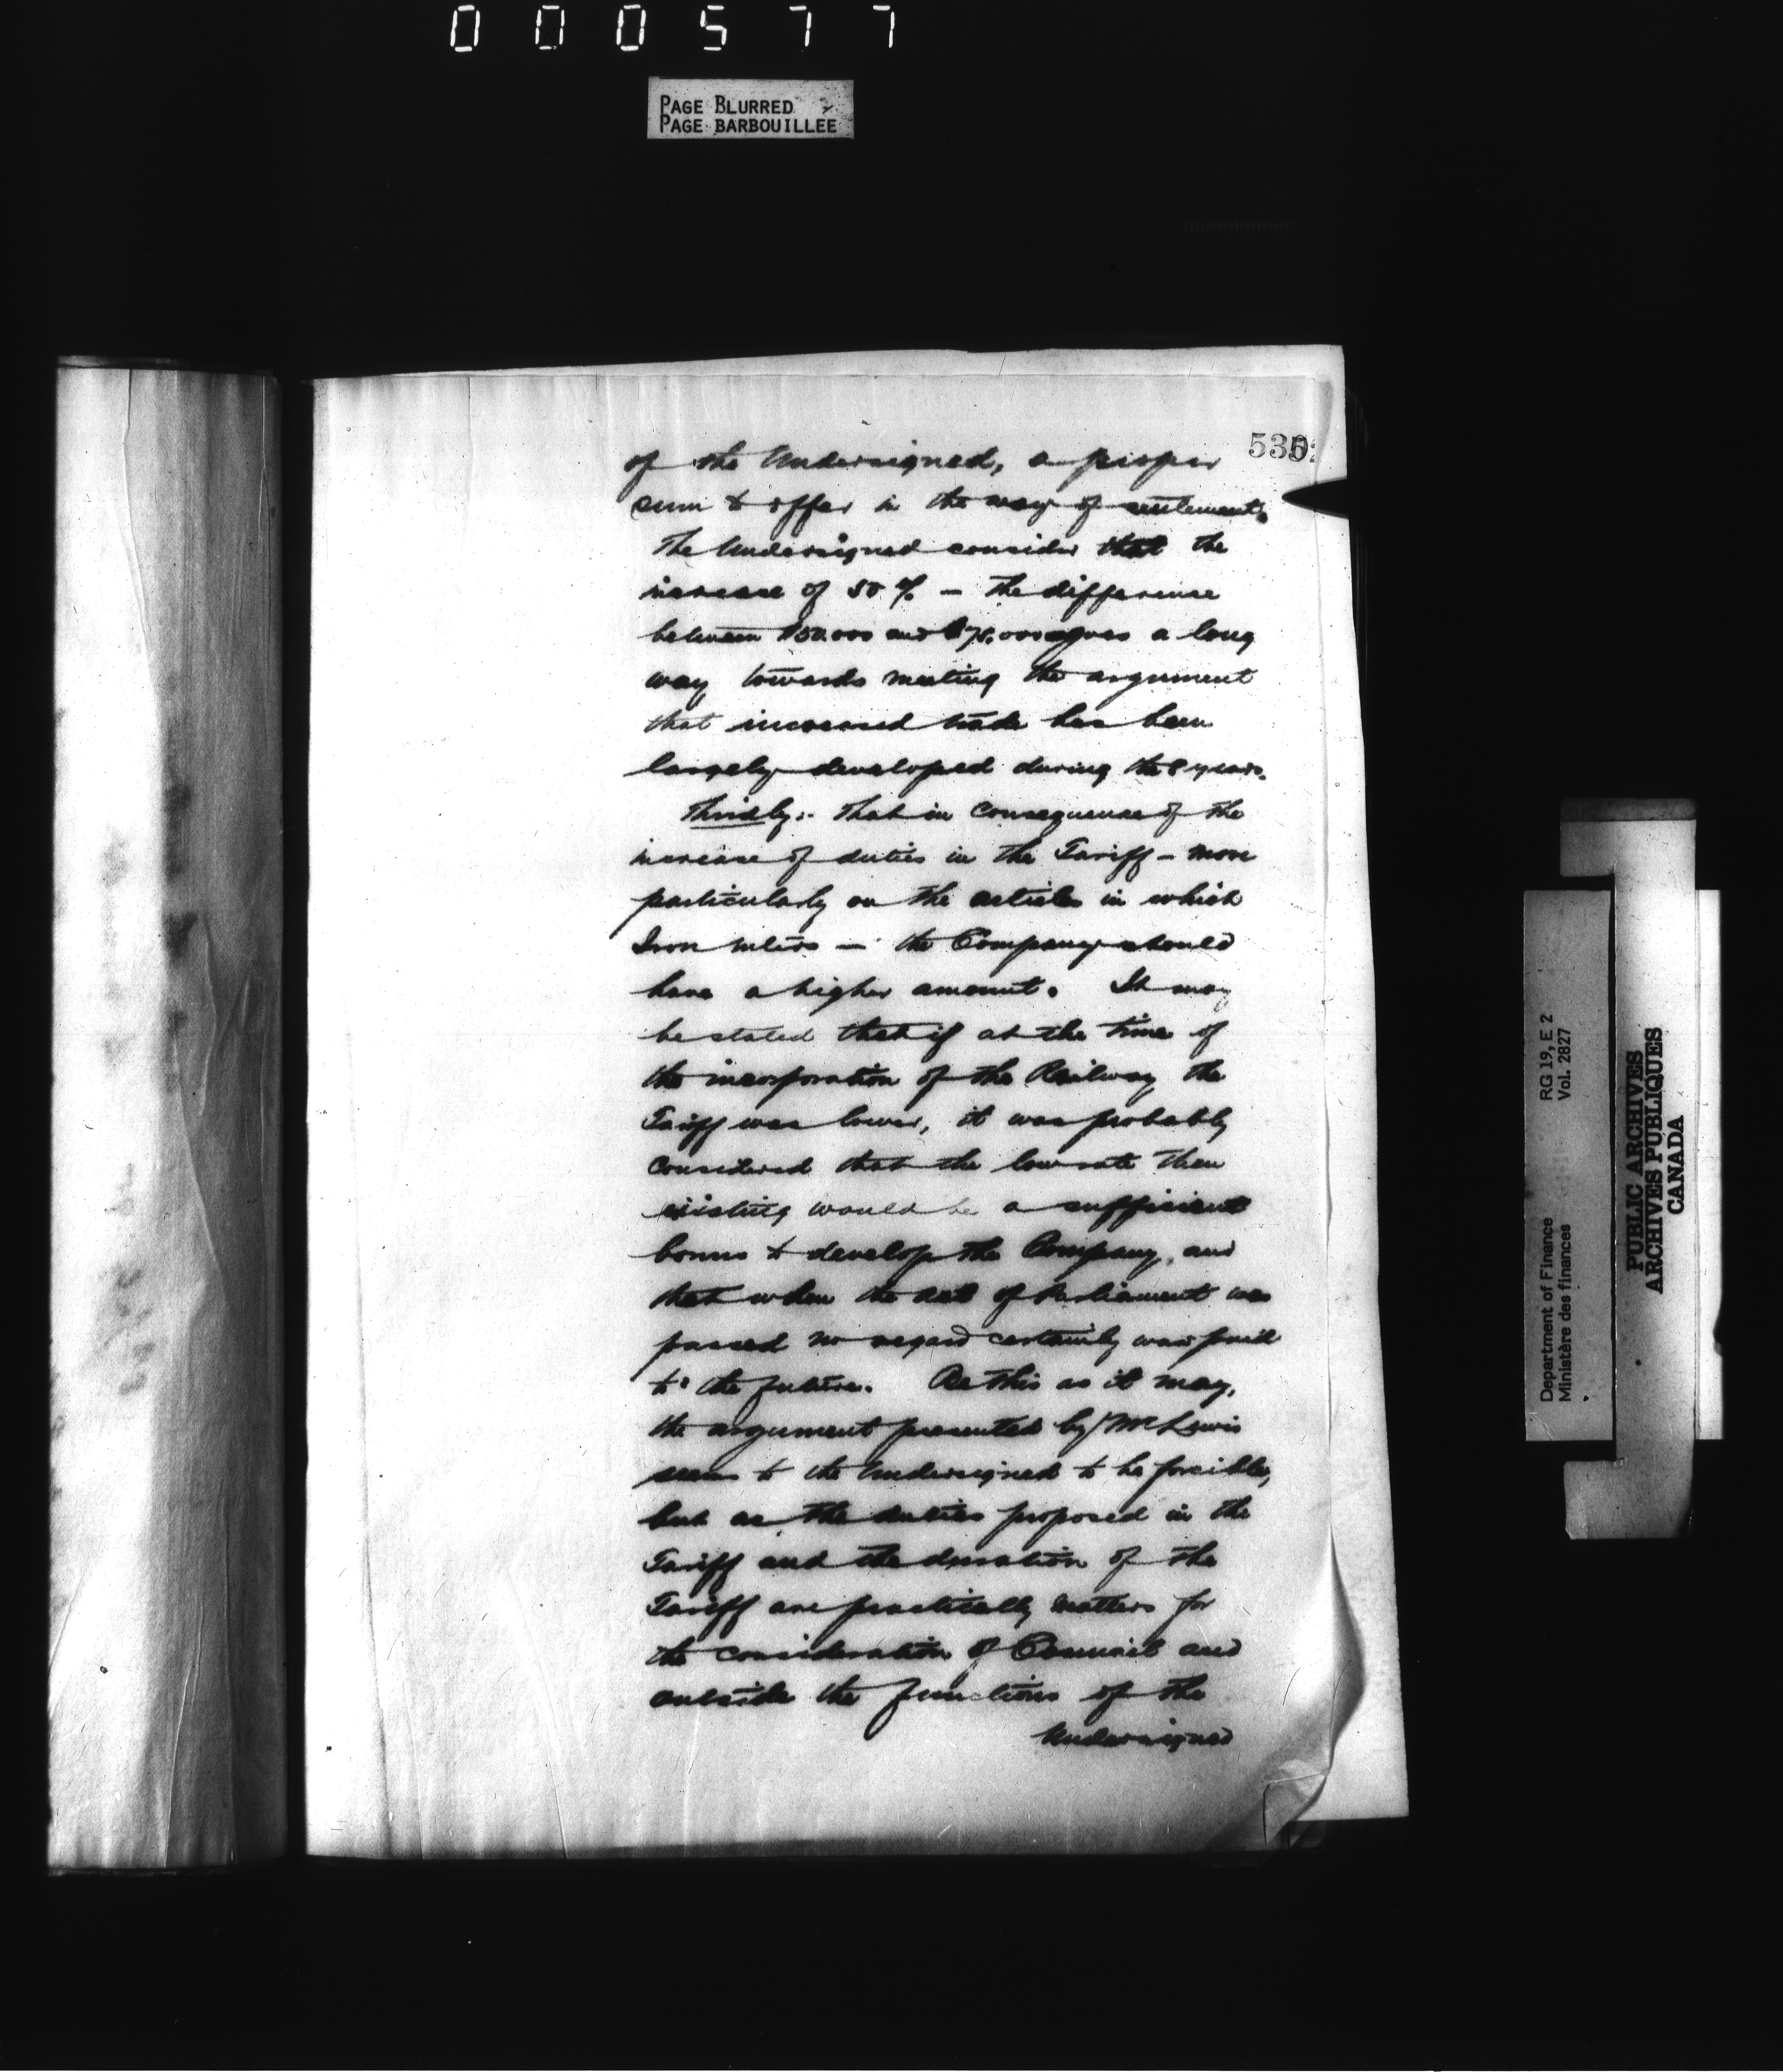 000577
PAGE BLURRED
PAGE BARBOUILLEE
530
of the Undersigned, a proper
sum to offer in the way of settlement.
The Undersigned consider that the
increase of 50 % — the difference
between $50.000 and $75.000 goes a long
way towards meeting the argument
that increased trade has been
largely developed during the 8 years.
Thirdly:- That in consequence of the
increase of duties in the Tariff — more
particularly on the articles in which
Iron enters — the Company should
have a higher amount. It may
be stated that if at the time of
the incorporation of the Railway the
Tariff was lower, it was probably
considered that the low rate then
existing would be a sufficient
bonus to develop the Company, and
that when the Act of Parliament was
passed no regard certainly was paid
to the future. Be this as it may,
the argument presented by Mr Lewis
seems to the Undersigned to be forcible,
but as the duties proposed in the
Tariff and the duration of the
Tariff are practically matters for
the consideration of Council and
outside the functions of the
Undersigned
Department of Finance RG 19, E 2
Ministère des finances Vol. 2827
PUBLIC ARCHIVES
ARCHIVES PUBLIQUES
CANADA